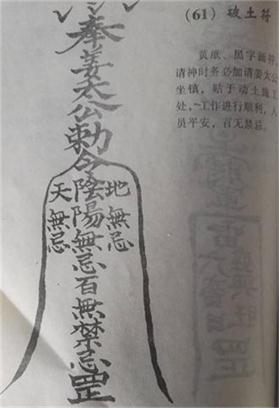 (61) 破土符
黄纸、黑字画符，
请神时务必加请姜太公
坐镇，贴于动土施工
处，~工作进行顺利，人
员平安，百无禁忌。
奉姜太公勅令
天無忌
地無忌
陰陽無忌百無禁忌罡